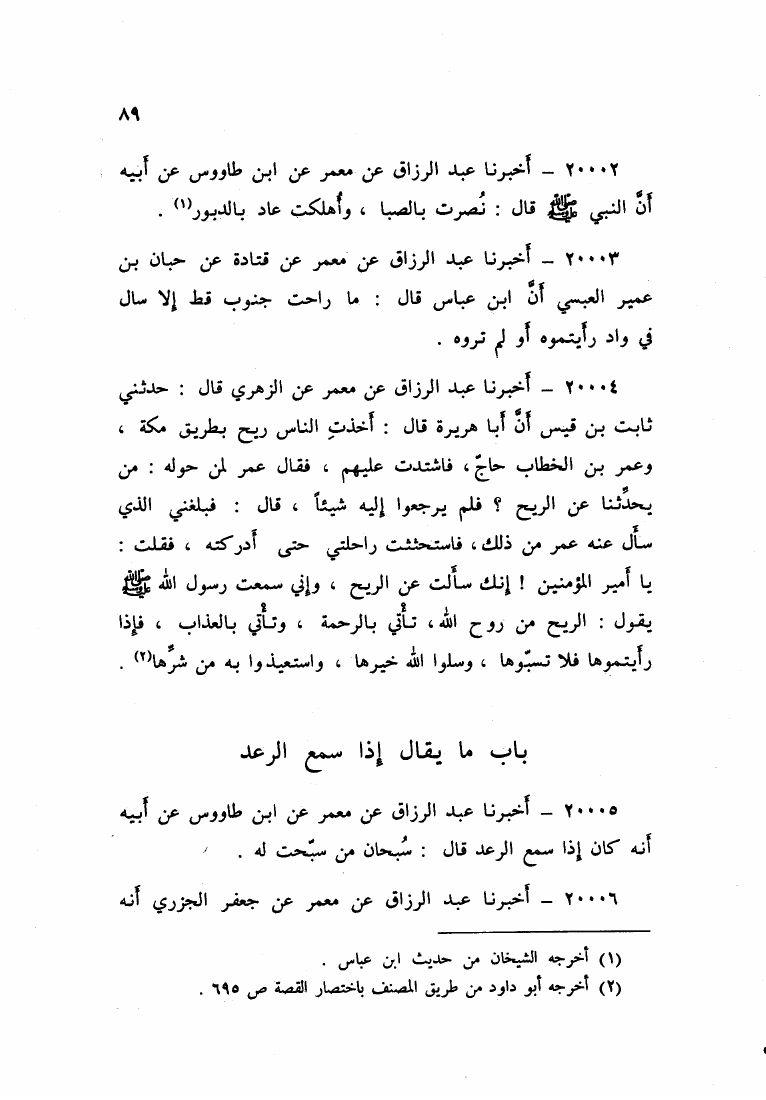 ٨٩
٢٠٠٠٢ – أخبرنا عبد الرزاق عن معمر عن ابن طاووس عن أبيه
أنَّ النبي ﷺ قال : نُصرت بالصبا ، وأُهلكت عاد بالدبور(١) .
٢٠٠٠٣ – أخبرنا عبد الرزاق عن معمر عن قتادة عن حبان بن
عمير العبسي أنَّ ابن عباس قال : ما راحت جنوب قط إلا سال
في واد رأيتموه أو لم تروه .
٢٠٠٠٤ – أخبرنا عبد الرزاق عن معمر عن الزهري قال : حدثني
ثابت بن قيس أنَّ أبا هريرة قال : أخذتِ الناس ريح بطريق مكة ،
وعمر بن الخطاب حاجّ، فاشتدت عليهم ، فقال عمر لمن حوله : من
يحدِّثنا عن الريح ؟ فلم يرجعوا إليه شيئاً ، قال : فبلغني الذي
سأل عنه عمر من ذلك، فاستحثثت راحلتي حتى أدركته ، فقلت :
يا أمير المؤمنين ! إنك سألت عن الريح ، وإني سمعت رسول الله ﷺ
يقول : الريح من روح الله، تأْتي بالرحمة ، وتأْتي بالعذاب ، فإذا
رأيتموها فلا تسبّوها ، وسلوا الله خيرها ، واستعيذوا به من شرِّها(٢) .
باب ما يقال إذا سمع الرعد
٢٠٠٠٥ – أخبرنا عبد الرزاق عن معمر عن ابن طاووس عن أبيه
أنه كان إذا سمع الرعد قال : سُبحان من سبّحت له .
٢٠٠٠٦ – أخبرنا عبد الرزاق عن معمر عن جعفر الجزري أنه
(١) أخرجه الشيخان من حديث ابن عباس .
(٢) أخرجه أبو داود من طريق المصنف باختصار القصة ص ٦٩٥ .